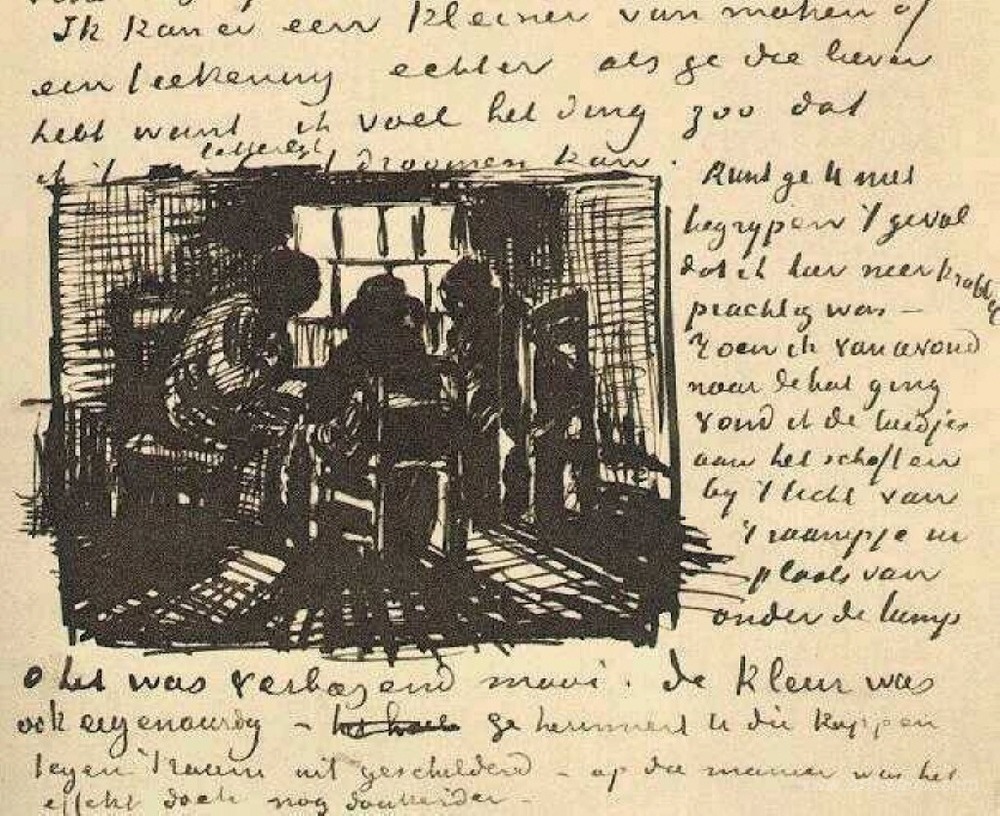 Ik kan er een kleiner van maken of
een teekening echter als ge die liever
hebt want ik voel het ding zoo dat
ik 't letterlijk droomen kan.
Kunt ge U niet
begrypen 't geval
dat ik hier neerkrabbel
prachtig was —
Toen ik van avond
naar de hut ging
vond ik de luidjes
aan het schoften
by 't licht van
't raampje in
plaats van
onder de lamp
o het was verbazend mooi. de kleur was
ook eigenaardig – ge herinnert U die koppen
tegen 't raam uit geschilderd – op die manier was het
effekt doch nog donkerder –